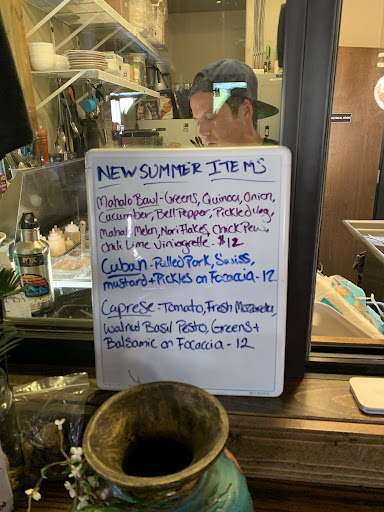 NEW SUMMER ITEMS
Mahalo Bowl - Greens, Quinoa, Onion,
Cucumber, Bell Pepper, Pickled Veg,
Mahal Melon, Nori Flakes, Chick Peas,
Chili Lime Vinaigrette - $12
Cuban - Pulled Pork, Swiss,
mustard + Pickles on Focaccia - 12
Caprese - Tomato, Fresh Mozzarella,
Walnut Basil Pesto, Greens +
Balsamic on Focaccia - 12